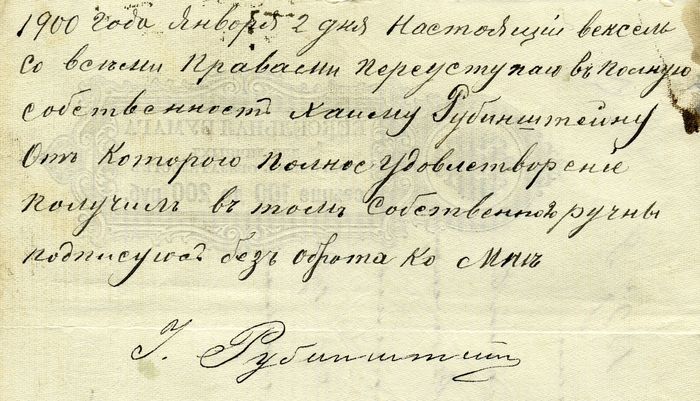 1900 года января 2 дня Настоящій вексель
со всѣми правами переуступаю въ полную
собственность Хаиму Рубинштейну
Отъ Которого полное удовлетвореніе
получилъ въ томъ собственноручны
подписуюсь безъ оброта Ко Мнѣ
І. Рубинштейн